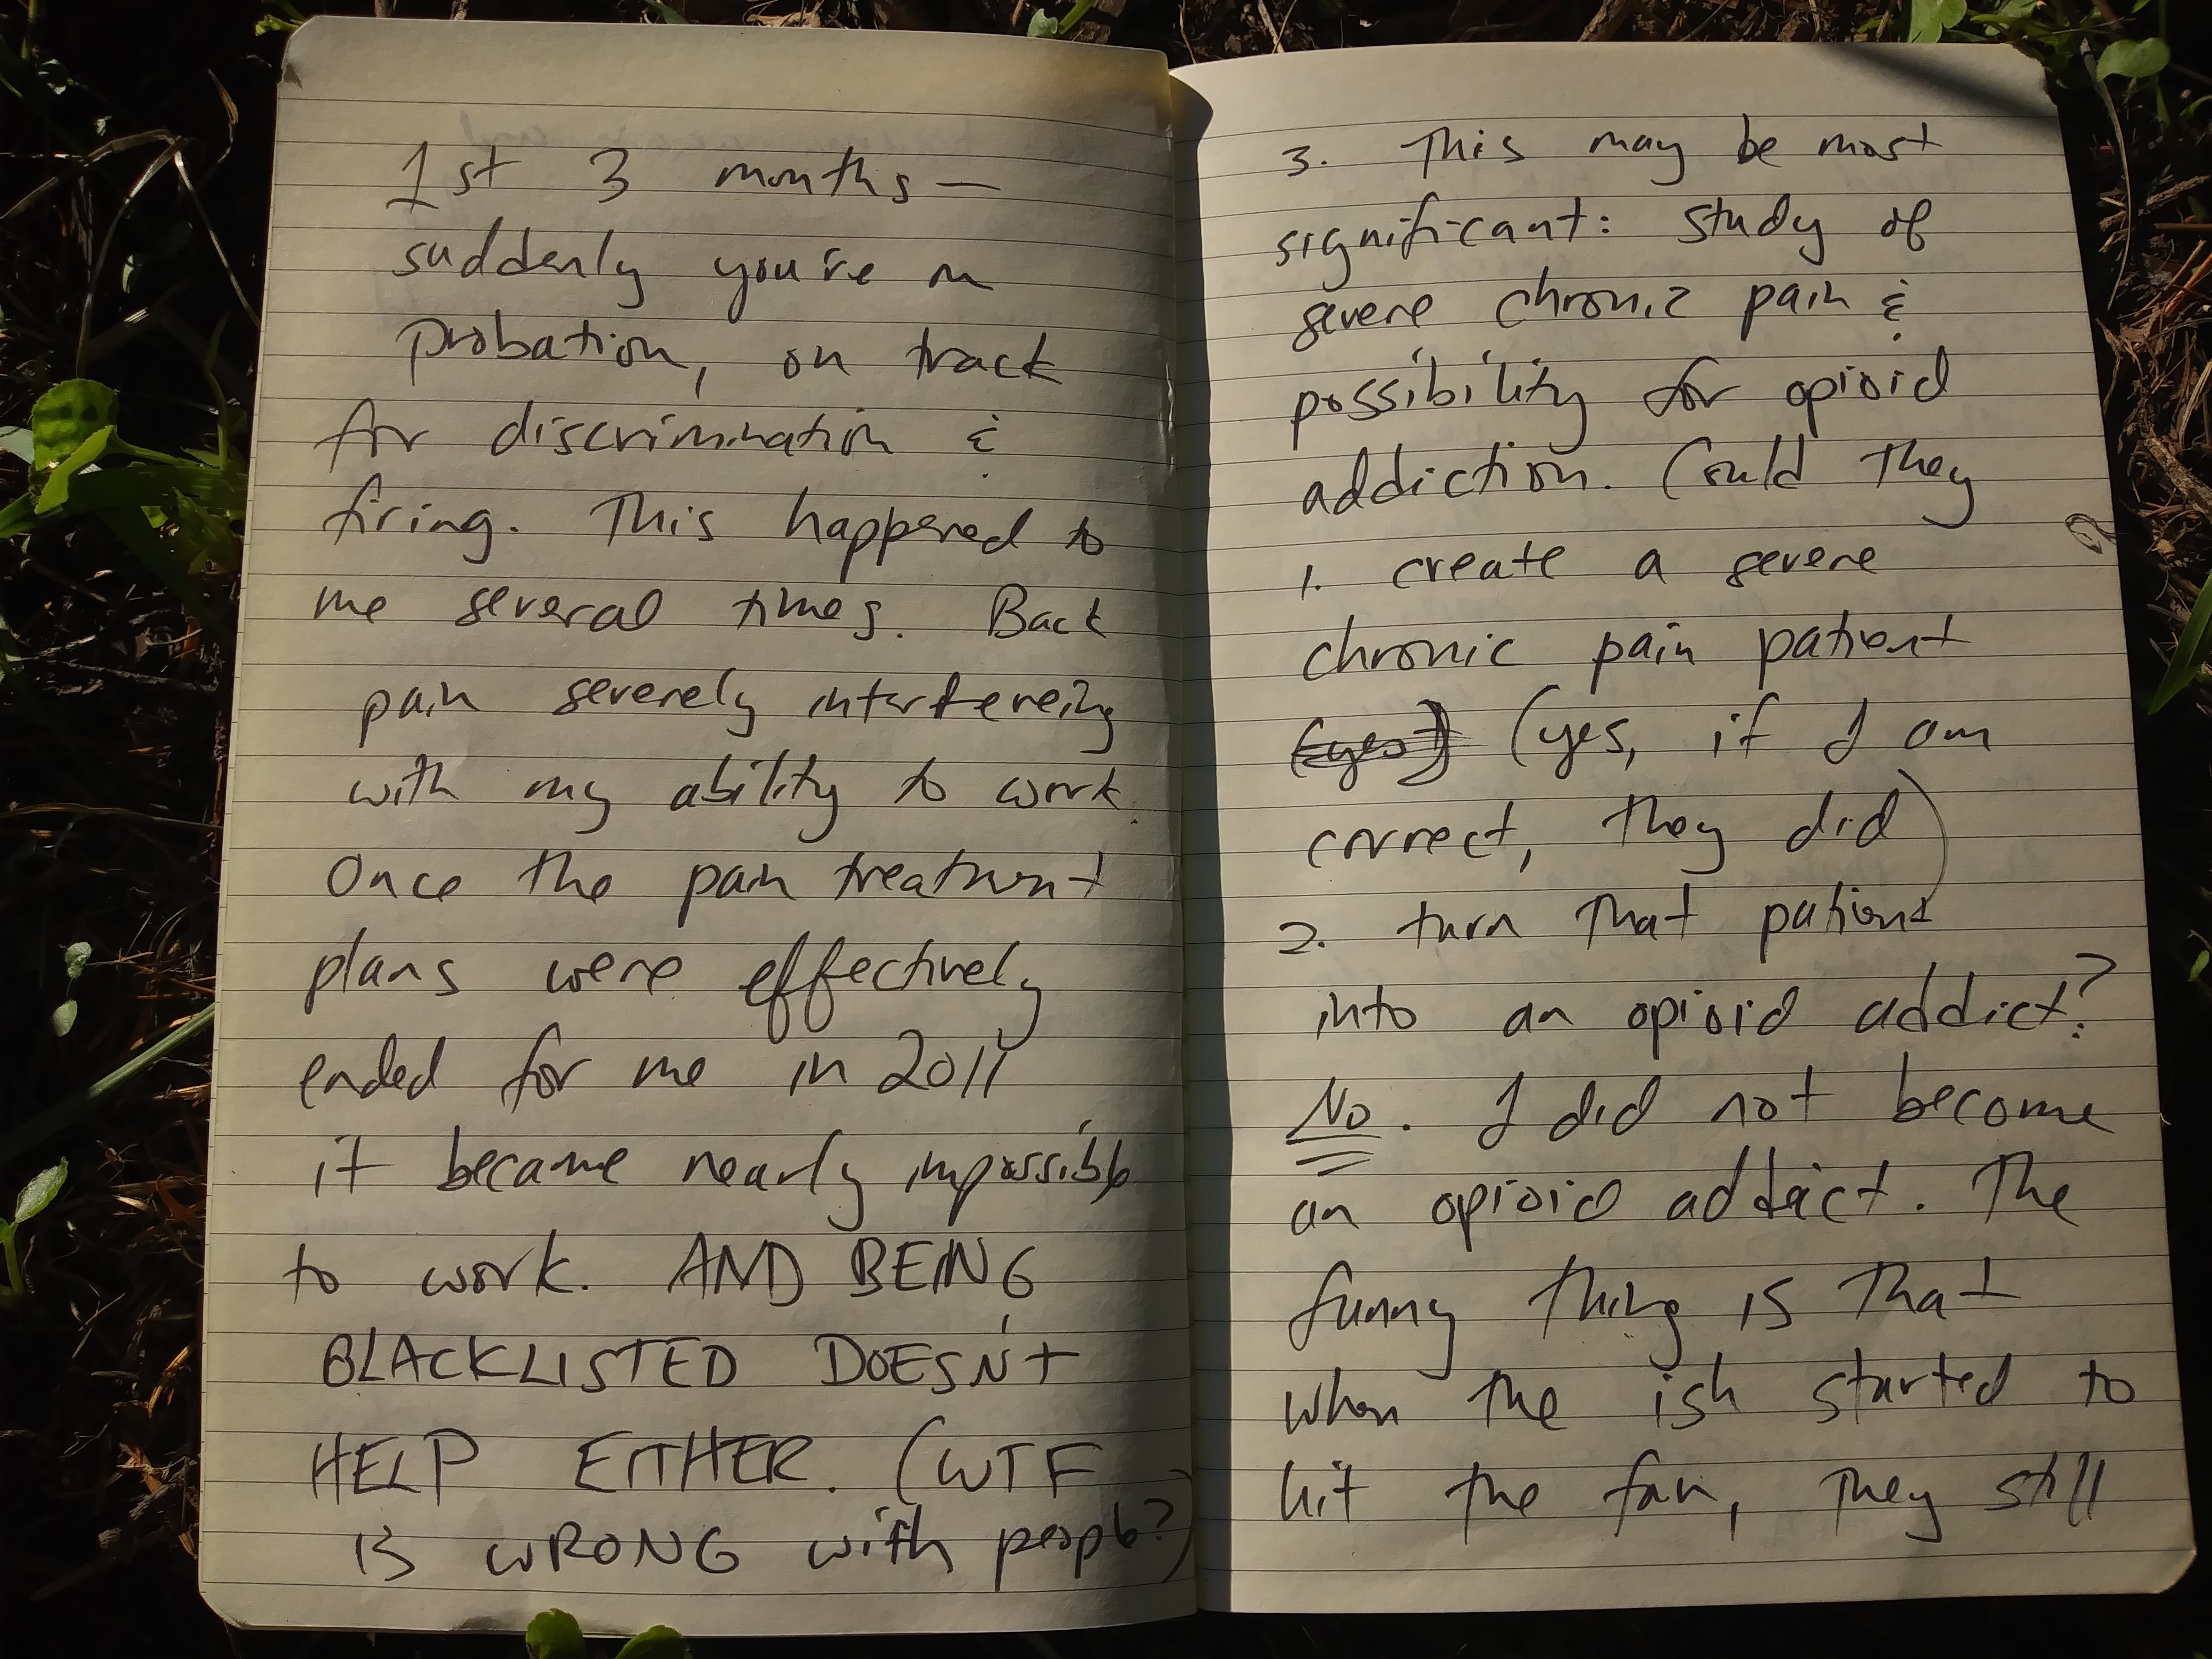 1st 3 months —
suddenly you're on
probation, on track
for discrimination &
firing. This happened to
me several times. Back
pain severely interfereing
with my ability to work.
Once the pain treatment
plans were effectively
ended for me in 2011
it became nearly impossible
to work. AND BEING
BLACKLISTED DOESN'T
HELP EITHER. (WTF
IS WRONG with people?)
3. This may be most
significant: study of
severe chronic pain &
possibility for opioid
addiction. Could they
1. create a severe
chronic pain patient
(yes) (yes, if I am
correct, they did)
2. turn that patient
into an opioid addict?
No. I did not become
an opioid addict. The
funny thing is that
when the ish started to
hit the fan, they still